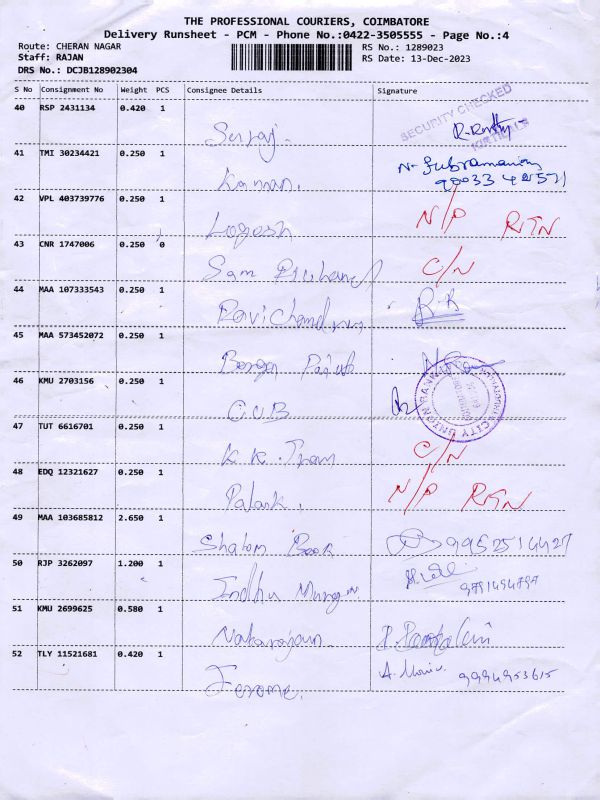 THE PROFESSIONAL COURIERS, COIMBATORE
Delivery Runsheet - PCM - Phone No.:0422-3505555 - Page No.:4
Route: CHERAN NAGAR
Staff: RAJAN
DRS No.: DCJB128902304
RS No.: 1289023
RS Date: 13-Dec-2023
S No Consignment No Weight PCS Consignee Details Signature
SECURITY CHECKED
40 RSP 2431134 0.420 1
41 TMI 30234421 0.250 1 Kannan. N- Subramanian
42 VPL 403739776 0.250 1 Logesh N/P RTN
43 CNR 1747006 0.250 0 Sam C/N
44 MAA 107333543 0.250 1 Ravi Chandran R.R
45 MAA 573452072 0.250 1
46 KMU 2703156 0.250 1 C.U.B
CITY UNION BANK
47 TUT 6616701 0.250 1 K K. C/N
48 EDQ 12321627 0.250 1 N/P RTN
49 MAA 103685812 2.650 1 Shalom Book 9952514427
50 RJP 3262097 1.200 1 Indhu Murugan 9791494797
51 KMU 2699625 0.580 1 Natarajan.
52 TLY 11521681 0.420 1 Jerome. 9994953615